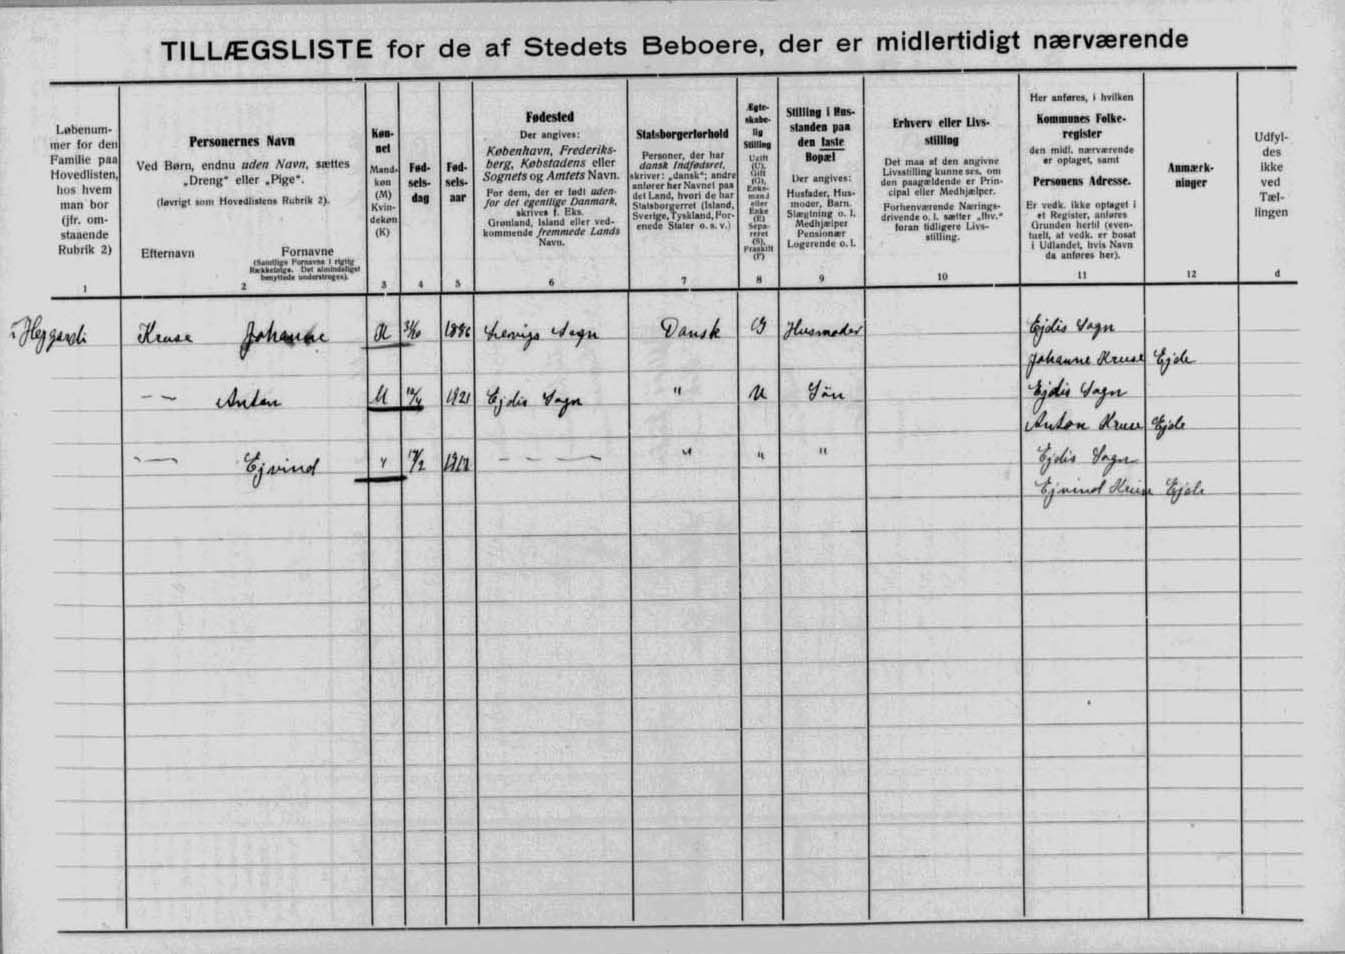 TILLÆGSLISTE for de af Stedets Beboere, der er midlertidigt nærværende
Løbenum-
mer for den
Familie paa
Hovedlisten,
hos hvem
man bor
(jfr. om-
staaende
Rubrik 2)
1
Personernes Navn
Ved Børn, endnu uden Navn, sættes
„Dreng“ eller „Pige“.
(Iøvrigt som Hovedlistens Rubrik 2).
Efternavn
Fornavne
(Samtlige Fornavne i rigtig
Rækkefølge. Det almindeligst
benyttede understreges).
2
Køn-
net
Mand-
køn
(M)
Kvin-
dekøn
(K)
3
Fød-
sels-
dag
4
Fød-
sels-
aar
5
Fødested
Der angives:
København, Frederiks-
berg, Købstadens eller
Sognets og Amtets Navn.
For dem, der er født uden-
for det egentlige Danmark,
skrives f. Eks.
Grønland, Island eller ved-
kommende fremmede Lands
Navn.
6
Statsborgerforhold
Personer, der har
dansk Indfødsret,
skriver: „dansk“; andre
anfører her Navnet paa
det Land, hvori de har
Statsborgerret (Island,
Sverige, Tyskland, For-
enede Stater o. s. v.)
7
Ægte-
skabe-
lig
Stilling
Ugift
(U),
Gift
(G),
Enke-
mand
eller
Enke
(E)
Sepa-
reret
(S),
Fraskilt
(F)
8
Stilling i Hus-
standen paa
den faste
Bopæl
Der angives:
Husfader, Hus-
moder, Barn,
Slægtning o. l.
Medhjælper
Pensionær
Logerende o. l.
9
Erhverv eller Livs-
stilling
Det maa af den angivne
Livsstilling kunne ses, om
den paagældende er Prin-
cipal eller Medhjælper.
Forhenværende Nærings-
drivende o. l. sætter „fhv.“
foran tidligere Livs-
stilling.
10
Her anføres, i hvilken
Kommunes Folke-
register
den midl. nærværende
er optaget, samt
Personens Adresse.
Er vedk. ikke optaget i
et Register, anføres
Grunden hertil (even-
tuelt, at vedk. er bosat
i Udlandet, hvis Navn
da anføres her).
11
Anmærk-
ninger
12
Udfyl-
des
ikke
ved
Tæl-
lingen
d
Kruse Johanne K 1886 Sogn Dansk G Husmoder Ejdis Sogn
Johanne Kruse Ejde
— — Anton M 1921 Ejdis Sogn " U Sön Ejdis Sogn
Anton Kruse Ejde
— — Ejvind " — — — — " " " Ejdis Sogn
Ejvind Kruse Ejde